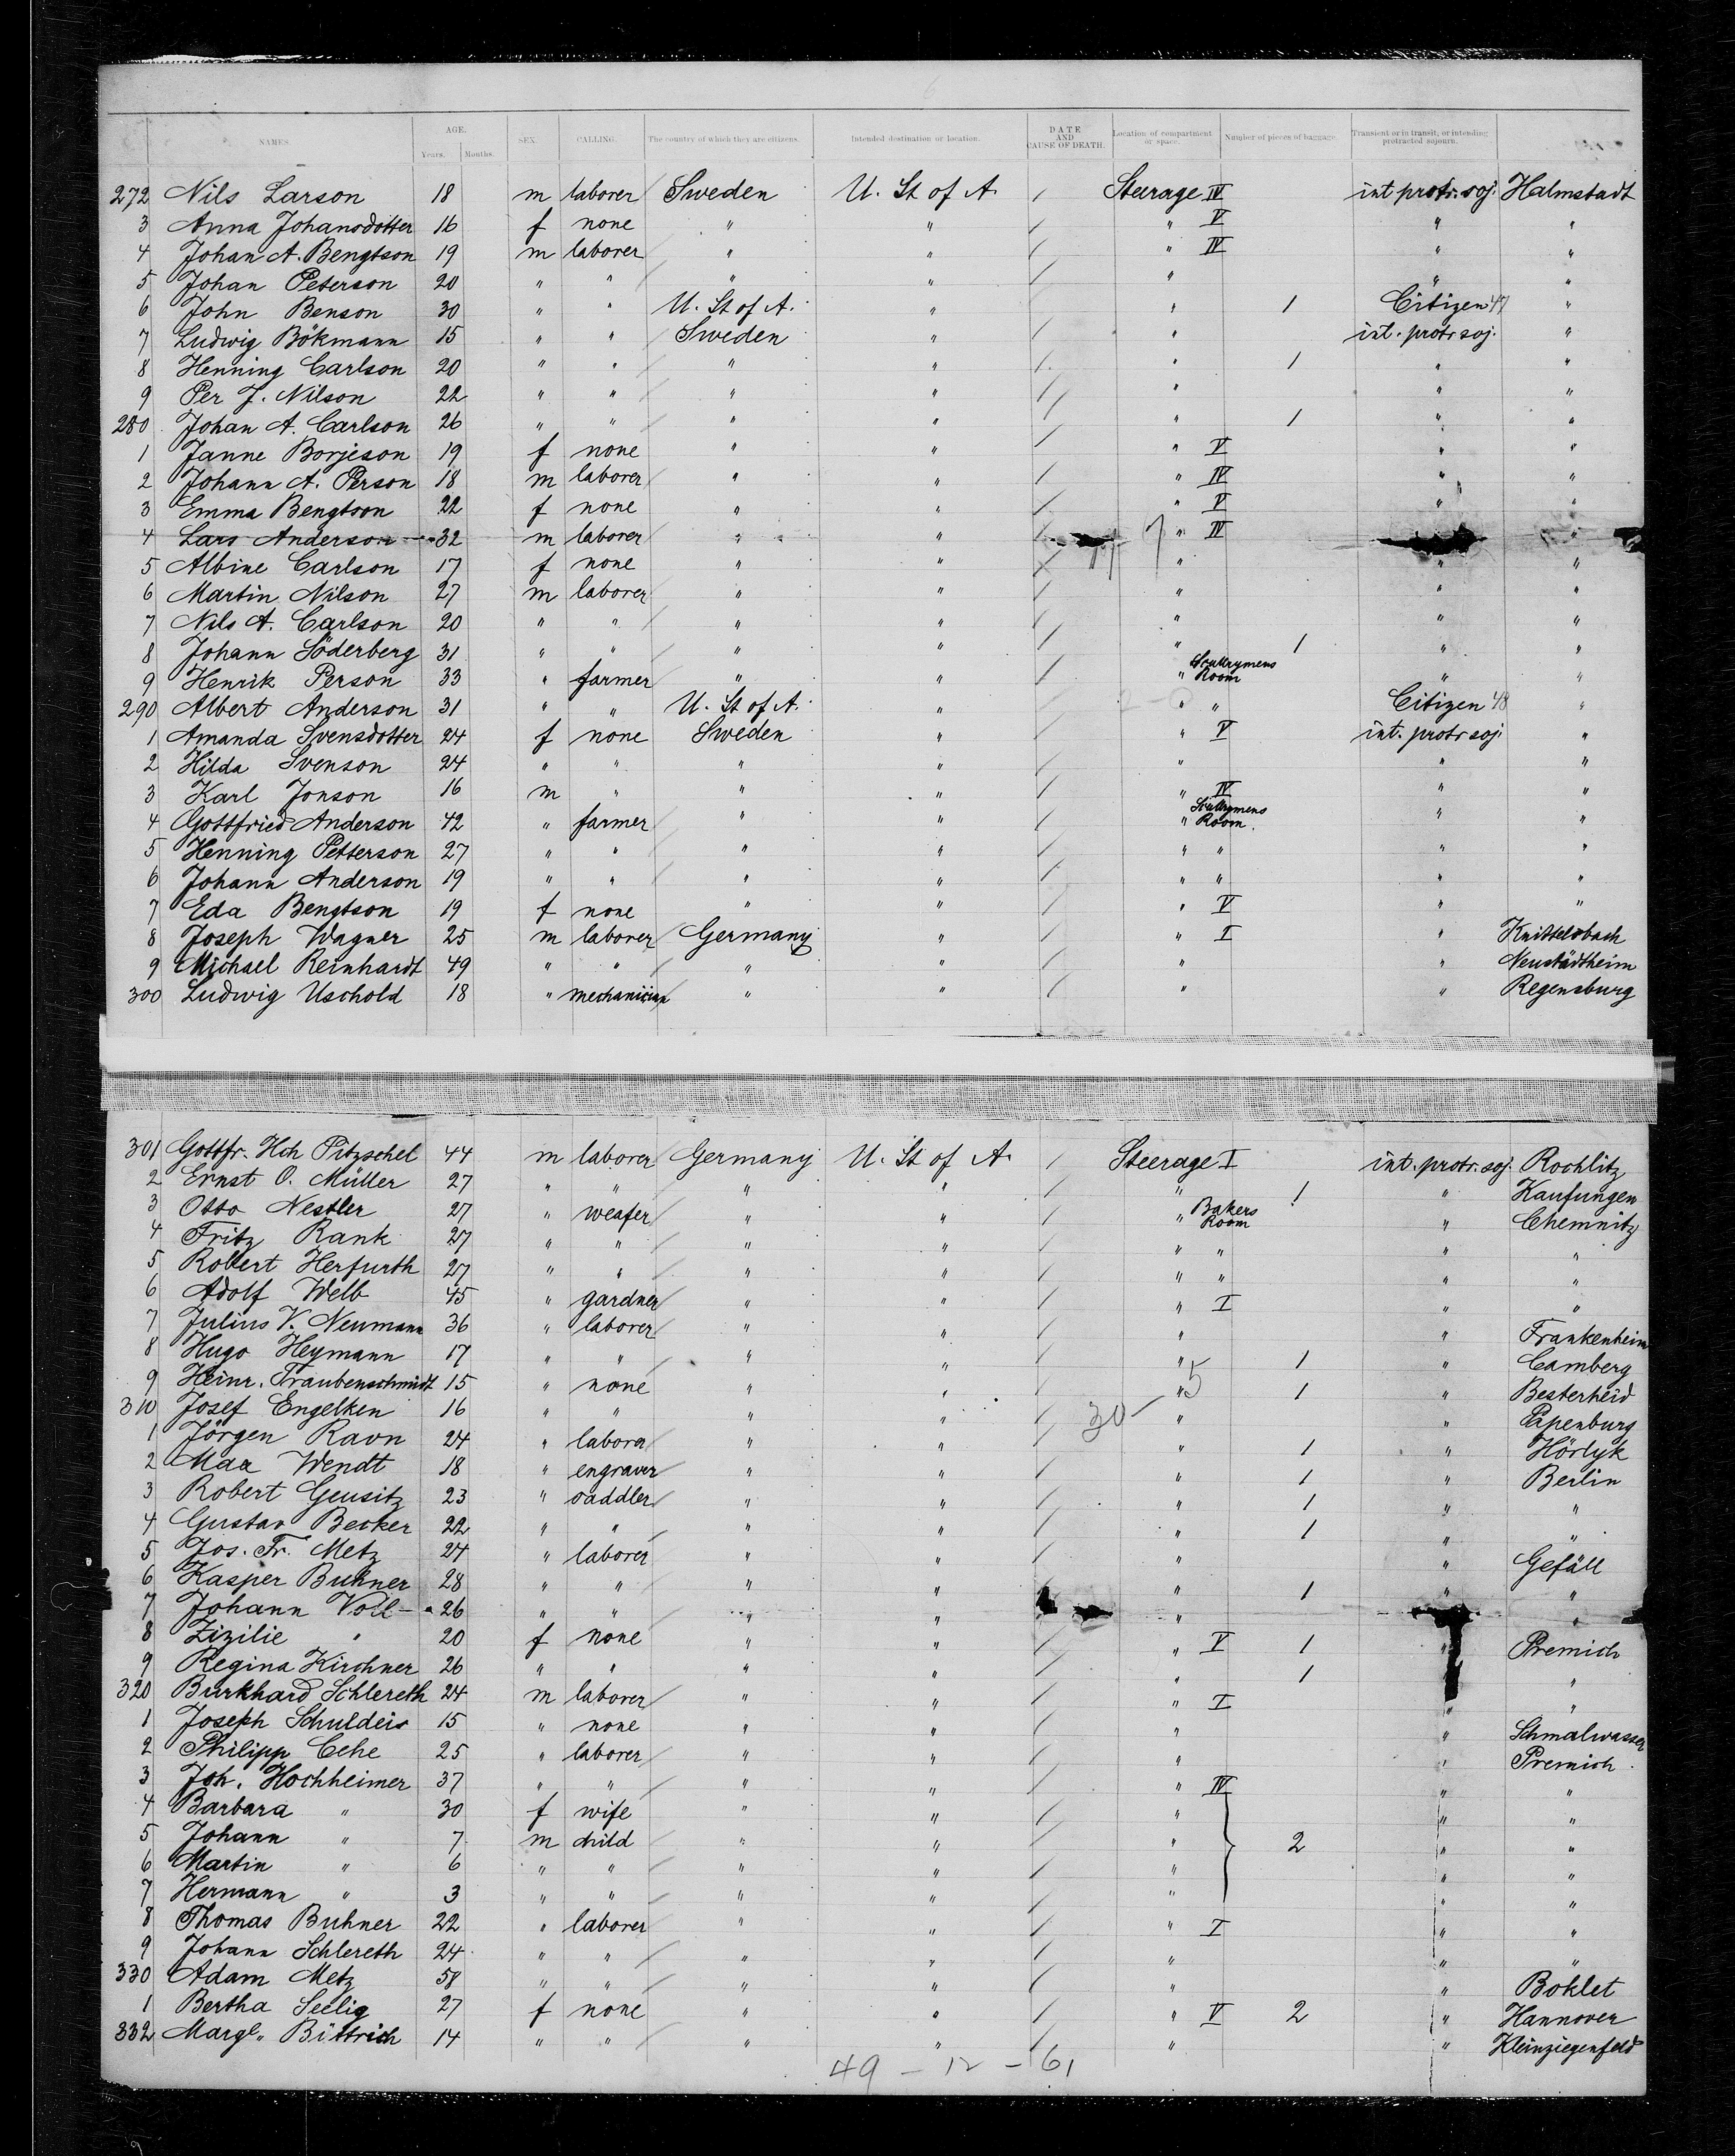 NAMES. AGE. Years. Months. SEX. CALLING. The country of which they are citizens. Intended destination or location. DATE AND CAUSE OF DEATH. Location of compartment or space. Number of pieces of baggage. Transient or in transit, or intending protracted sojourn.
272 Nils Larson 18 m laborer Sweden U. St of A. / Steerage IV int. protr. soj. Halmstadt
3 Anna Johansdotter 16 f none " " / " V " "
4 Johan A. Bengtson 19 m laborer " " / " IV " "
5 Johan Peterson 20 " " " " / " " "
6 John Benson 30 " " U. St of A. " " 1 Citizen 47 "
7 Ludwig Bökmann 15 " " Sweden " / " int. protr soj. "
8 Henning Carlson 20 " " " " / " 1 " "
9 Per J. Nilson 22 " " " " / " " "
280 Johan A. Carlson 26 " " " " / " 1 " "
1 Janne Borjeson 19 f none " " / " V " "
2 Johann A. Person 18 m laborer " " / " IV " "
3 Emma Bengtson 22 f none " " / " V " "
4 Lars Anderson 32 m laborer " " / " IV "
5 Albine Carlson 17 f none " " / " " "
6 Martin Nilson 27 m laborer " " / " " "
7 Nils A. Carlson 20 " " " " / " " "
8 Johann Söderberg 31 " " " " / " 1 " "
9 Henrik Person 33 " farmer " " / " Room " "
290 Albert Anderson 31 " " U. St of A. " " " Citizen 48 "
1 Amanda Svensdotter 24 f none Sweden " / " V int. protr soj. "
2 Hilda Svenson 24 " " " " / " " "
3 Karl Jonson 16 m " " " / " IV " "
4 Gottfried Anderson 42 " farmer " " / " Room. " "
5 Henning Petterson 27 " " " " / " " " "
6 Johann Anderson 19 " " " " / " " " "
7 Eda Bengtson 19 f none " " / " V " "
8 Joseph Wagner 25 m laborer Germany " / " I " Knittelsbach
9 Michael Reinhardt 49 " " " " / " " Neustädtheim
300 Ludwig Uschold 18 " mechanician " " / " " Regensburg
301 Gottfr. Hch Pitzschel 44 m laborer Germany U. St of A. / Steerage I int. protr. soj. Rochlitz
2 Ernst O. Müller 27 " " " " / " 1 " Kaufungen
3 Otto Nestler 27 " weafer " " / " Bakers Room " Chemnitz
4 Fritz Rank 27 " " " " / " " " "
5 Robert Herfurth 27 " " " " / " " " "
6 Adolf Welb 45 " gardner " " / " I " "
7 Julius V. Neumann 36 " laborer " " / " " Frankenheim
8 Hugo Heymann 17 " " " " / " 1 " Camberg
9 Heinr. Traubenschmidt 15 " none " " / " 1 " Besterheid
310 Josef Engelken 16 " " " " / 30-5 " " Papenburg
1 Jörgen Ravn 24 " labora " " / " 1 " Hörlyk
2 Max Wendt 18 " engraver " " / " 1 " Berlin
3 Robert Geusitz 23 " saddler " " / " 1 " "
4 Gustav Becker 22 " " " " / " 1 " "
5 Jos. Fr. Metz 24 " laborer " " / " " Gefäll
6 Kasper Buhner 28 " " " " " 1 " "
7 Johann Voll 26 " " " " " "
8 Zizilie " 20 f none " " / " V 1 " Premich
9 Regina Kirchner 26 " " " " / " 1 "
320 Burkhard Schlereth 24 m laborer " " / " I " "
1 Joseph Schuldeis 15 " none " " / " " Schmalwasser
2 Philipp Cehe 25 " laborer " " / " " Premich
3 Joh. Hochheimer 37 " " " " / " IV " "
4 Barbara " 30 f wife " " / " " "
5 Johann " 7 m child " " / " 2 " "
6 Martin " 6 " " " " / " " "
7 Hermann " 3 " " " " / " " "
8 Thomas Buhner 22 " laborer " " / " I " "
9 Johann Schlereth 24 " " " " / " " "
330 Adam Metz 58 " " " " / " " Boklet
1 Bertha Seelig 27 f none " " / " V 2 " Hannover
332 Margl. Bittrich 14 " " " " / " " Kleinziegenfeld
49 - 12 - 61